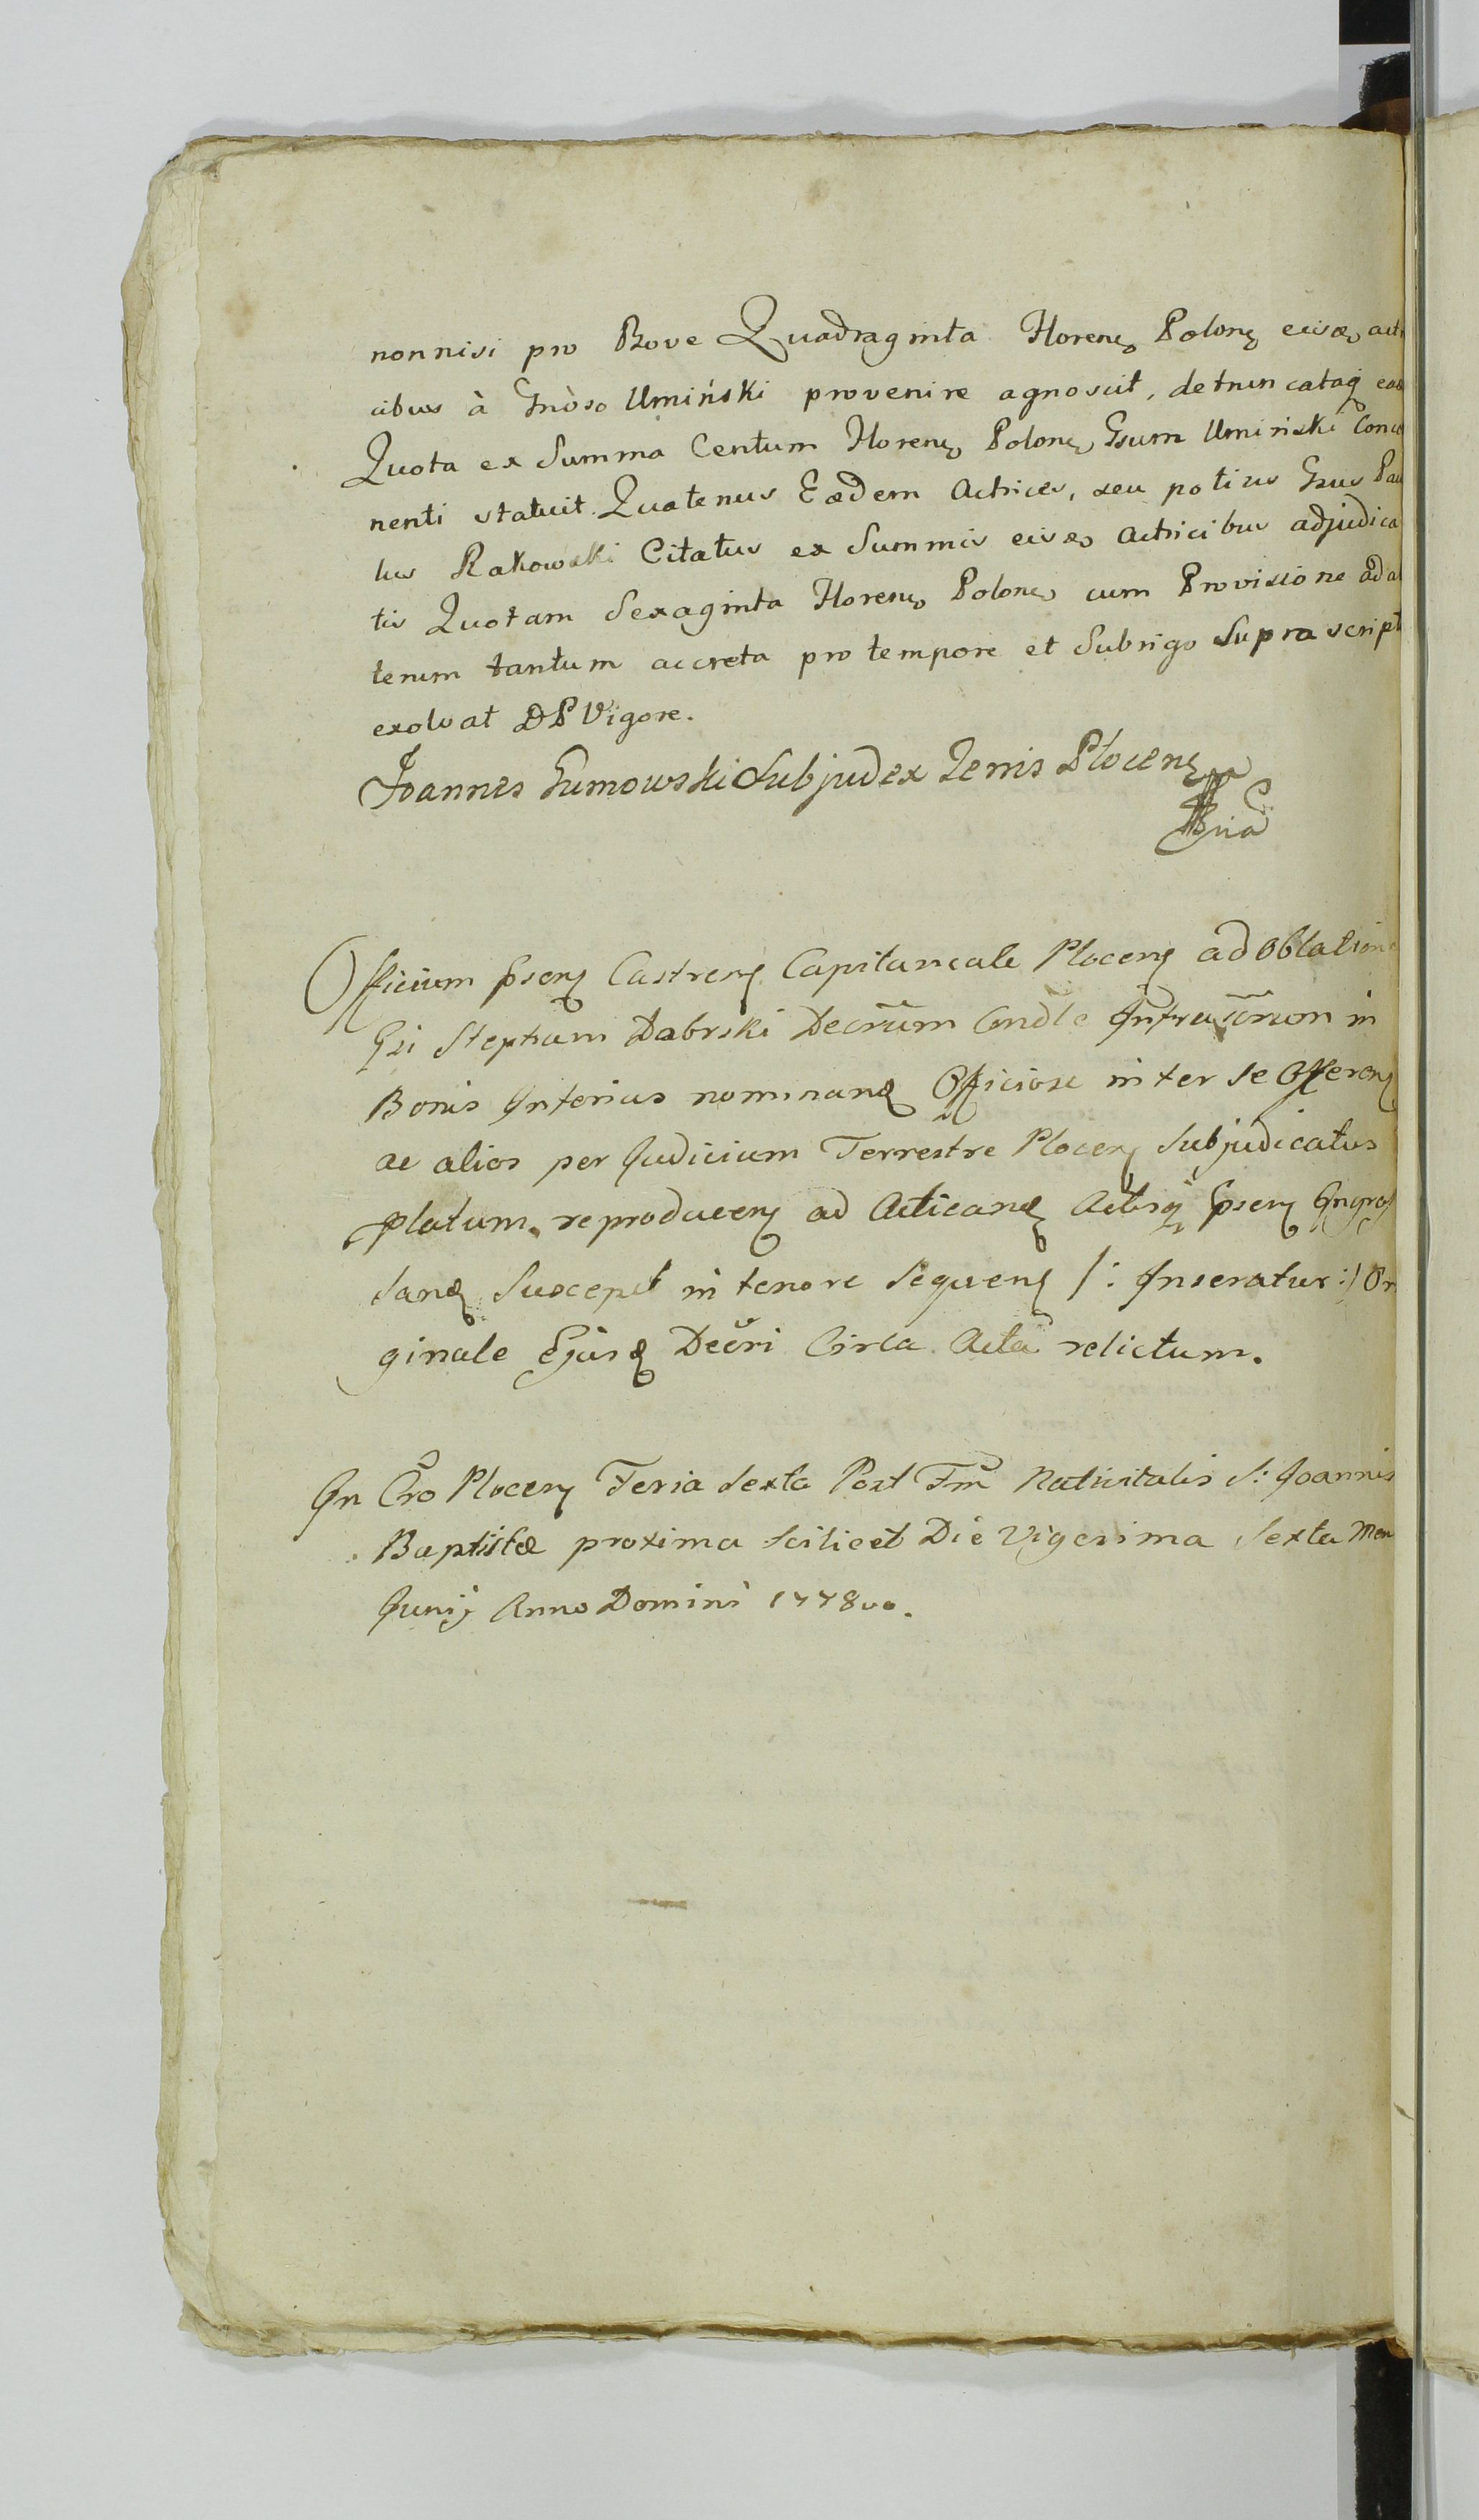 nonnisi pro Bove Quadraginta Floren Polon eisd
cibus à Gnoso Umiński provenire agnoscit, detruncataq ead
Quota ex Summa Centum Floren Polon Gsum Umiński Conce
nenti statuit. Quatenus Eædem Actrices, seu potius Gsus Pau
lus Rakowski Citatus ex Summis eisd Actricibus adjudica
tis Quotam Sexaginta Floren Polon cum Provisione ad a
terum tantum accreta pro tempore et Subrigo Suprascript
exolvat DP Vigore.
Joannes Gumowski Subjudex Terris Płocen

Officium psens Castren Capitaneale Plocen ad Oblation
Gsi Stephani Dabrski Decrum Condle Infrascrum in
Bonis Interius nominand Officiose inter se Offeren
ac alios per Judicium Terrestre Plocen Subjudicatus
platum reproducen ad Acticand Actisq psen Ingros
sand Suscepit in tenore Sequen /: Inseratur :/ Ori
ginale Ejusd Decri Circa Acta relictum.
In Cro Plocen Feria Sexta Post Fm Nativitatis S: Joannis
Baptistæ proxima scilicet Die Vigesima Sexta Men
Junij Anno Domini 1778vo.